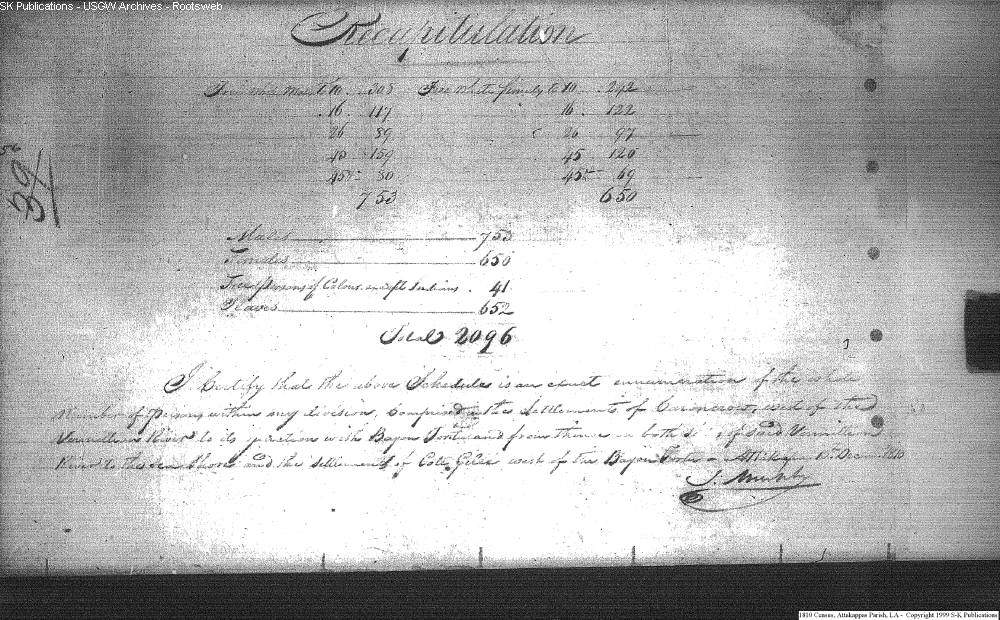 SK Publications - USGW Archives - Rootsweb
Recapitulation
Free white Males to 10 . 308 Free white females to 10 . 242
. 16 . 117 16 . 122
26 89 26 97
45 159 45 120
45 &c 80 45 &c 69
753 650
39
Males 753
Females 650
Free persons of Colour except Indians . 41
Slaves 652
Total 2096
I Certify that the above Schedule is an exact ennumeration of the whole
Number of persons within my division, Comprised in the Settlements of Carancrow, west of the
Vermillion River to its junction with Bayou Tortu and from thence on both of said Vermillion
River to the Sea Shore and the Settlement of Cote Gelée west of the Bayou Tortu 1810
J. Murphy
1810 Census, Attakappas Parish, LA - Copyright 1999 S-K Publications